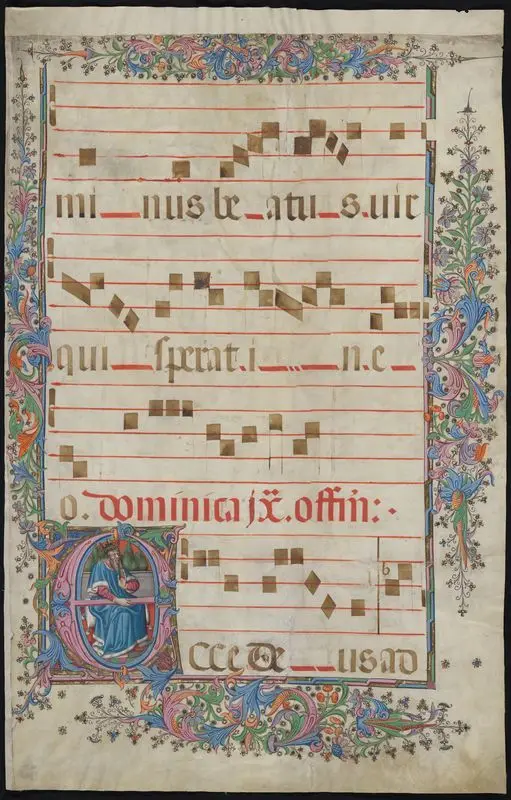 mi nus be atu s.uir
qui sperat.i n.e
o. dominica jx. offin:.
Ecce De us ad